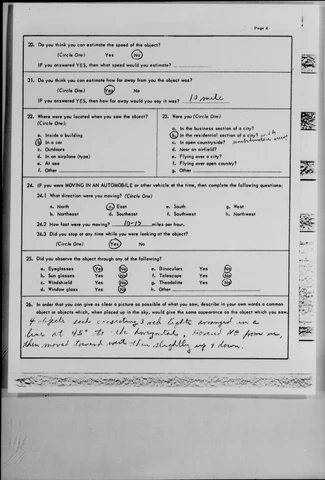 Page 4
20. Do you think you can estimate the speed of the object?
(Circle One) Yes No
IF you answered YES, then what speed would you estimate?
21. Do you think you can estimate how far away from you the object was?
(Circle One) Yes No
IF you answered YES, then how far away would you say it was? 10 mile
22. Where were you located when you saw the object?
(Circle One):
a. Inside a building
b. In a car
c. Outdoors
d. In an airplane (type)
e. At sea
f. Other
23. Were you (Circle One)
a. In the business section of a city?
b. In the residential section of a city? with
c. In open countryside?
d. Near an airfield?
e. Flying over a city?
f. Flying over open country?
g. Other
24. IF you were MOVING IN AN AUTOMOBILE or other vehicle at the time, then complete the following questions:
24.1 What direction were you moving? (Circle One)
a. North c. East e. South g. West
b. Northeast d. Southeast f. Southwest h. Northwest
24.2 How fast were you moving? 10-15 miles per hour.
24.3 Did you stop at any time while you were looking at the object?
(Circle One) Yes No
25. Did you observe the object through any of the following?
a. Eyeglasses Yes No e. Binoculars Yes No
b. Sun glasses Yes No f. Telescope Yes No
c. Windshield Yes No g. Theodolite Yes No
d. Window glass Yes No h. Other
26. In order that you can give as clear a picture as possible of what you saw, describe in your own words a common
object or objects which, when placed up in the sky, would give the same appearance as the object which you saw.
4 objects each consisting 3 red lights arranged in a
line at 45° to the horizontal. Hovered NE from us
then moved toward west then slightly up & down.